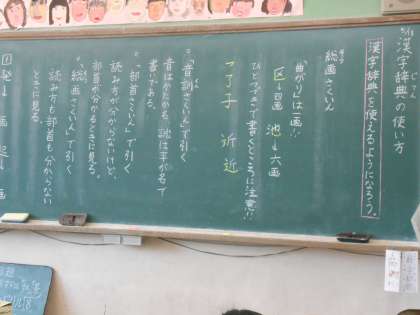 漢字辞典の使い方
漢字辞典を使えるようになろう。
総画さくいん
「曲がり」は一画!!
区→四画 池→六画
ひとふでで書くところに注意!!
了子 近近
◦「音訓さくいん」で引く
音はかたかな、訓は平がなで
書いてある。
◦「部首さくいん」で引く
読み方が分からないけど、
部首が分かるときに見る。
◦「総画さくいん」で引く
読み方も部首も分からない
ときに見る。